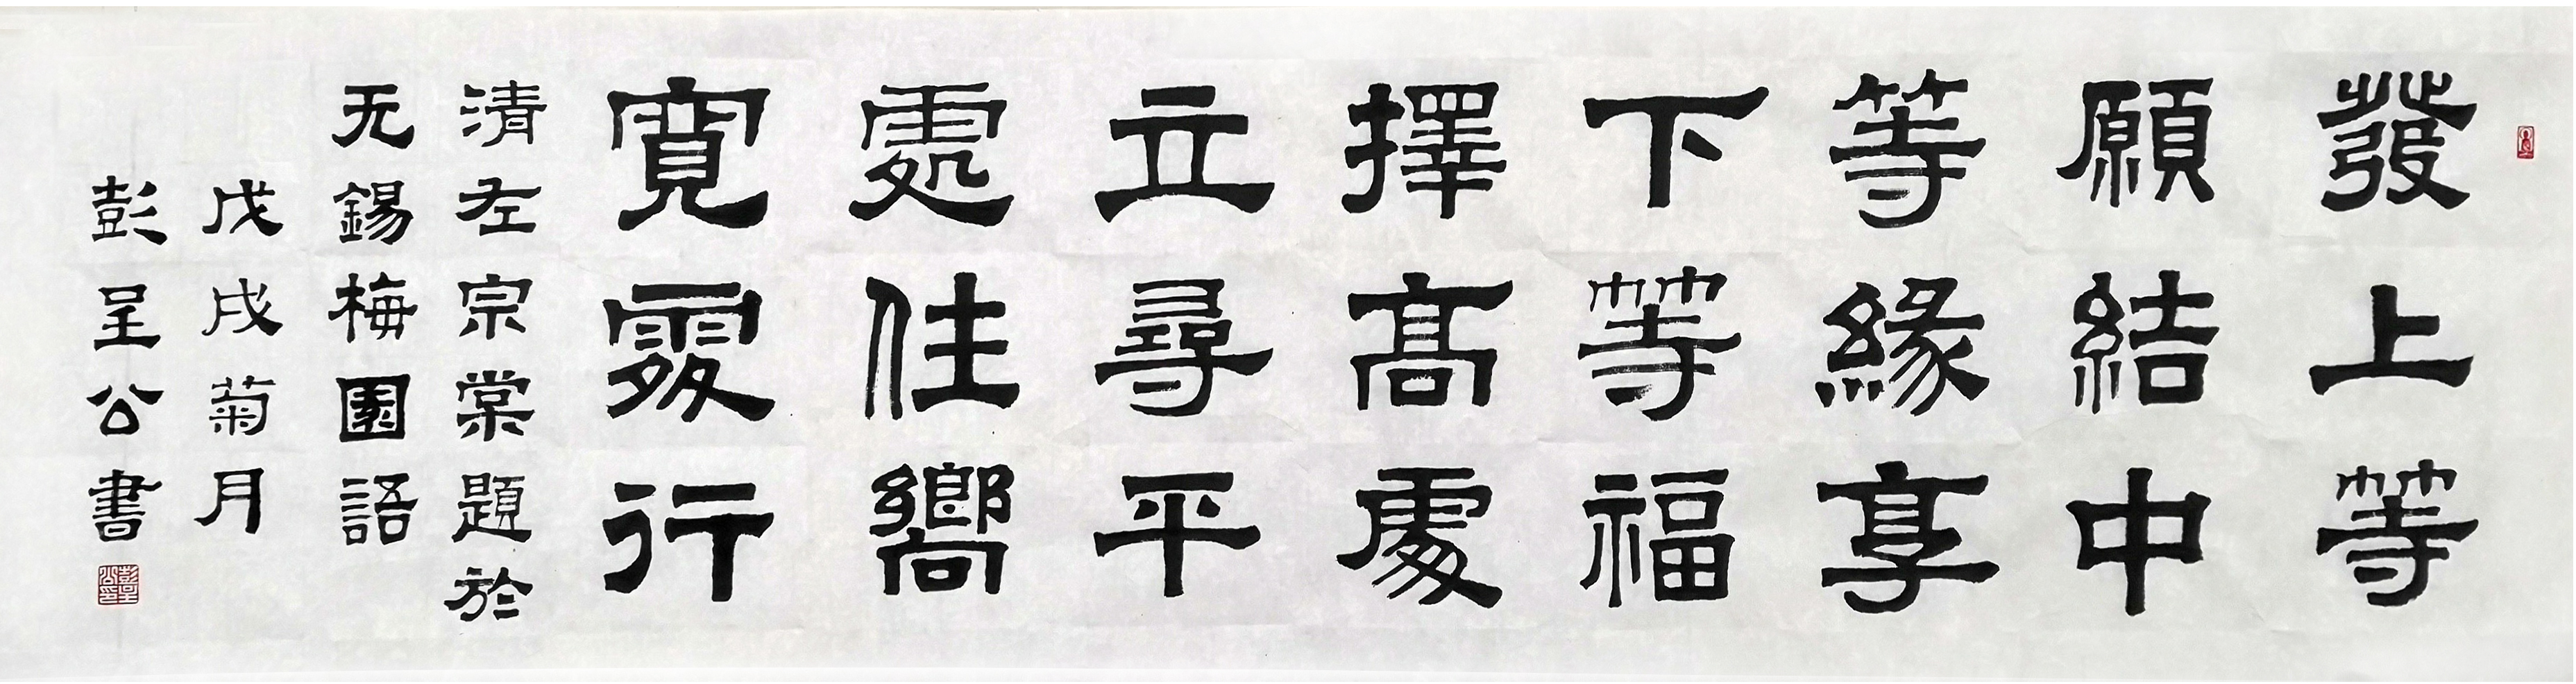 發上等
願結中
等緣享
下等福
擇高處
立尋平
處住嚮
寬處行
清左宗棠題於
无錫梅園語
戊戌菊月
彭呈公書